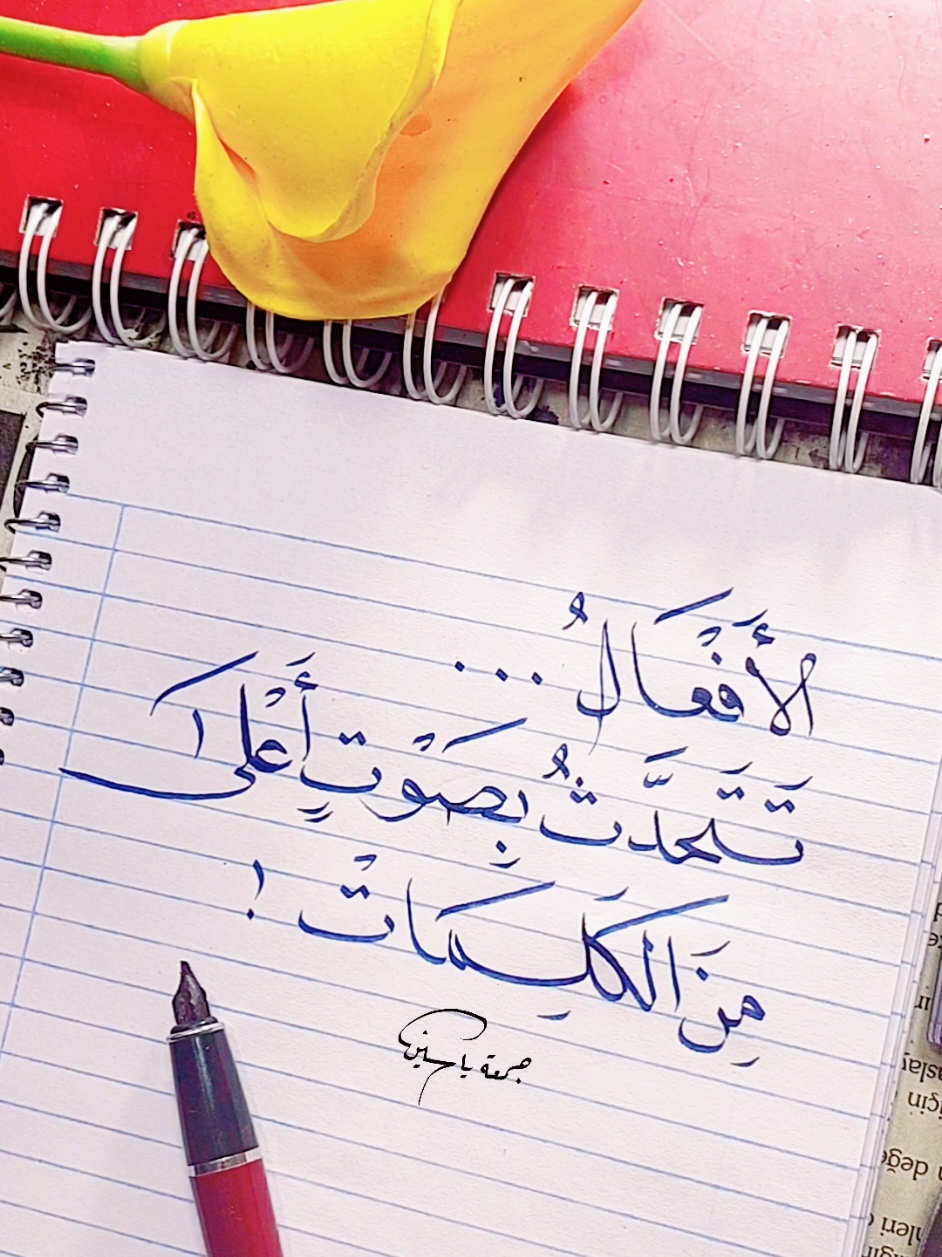 الأَفْعَالُ...
تَتَحَدَّثُ بِصَوْتٍ أَعْلَى
مِنَ الكَلِمَاتْ!
جمعة ياسين